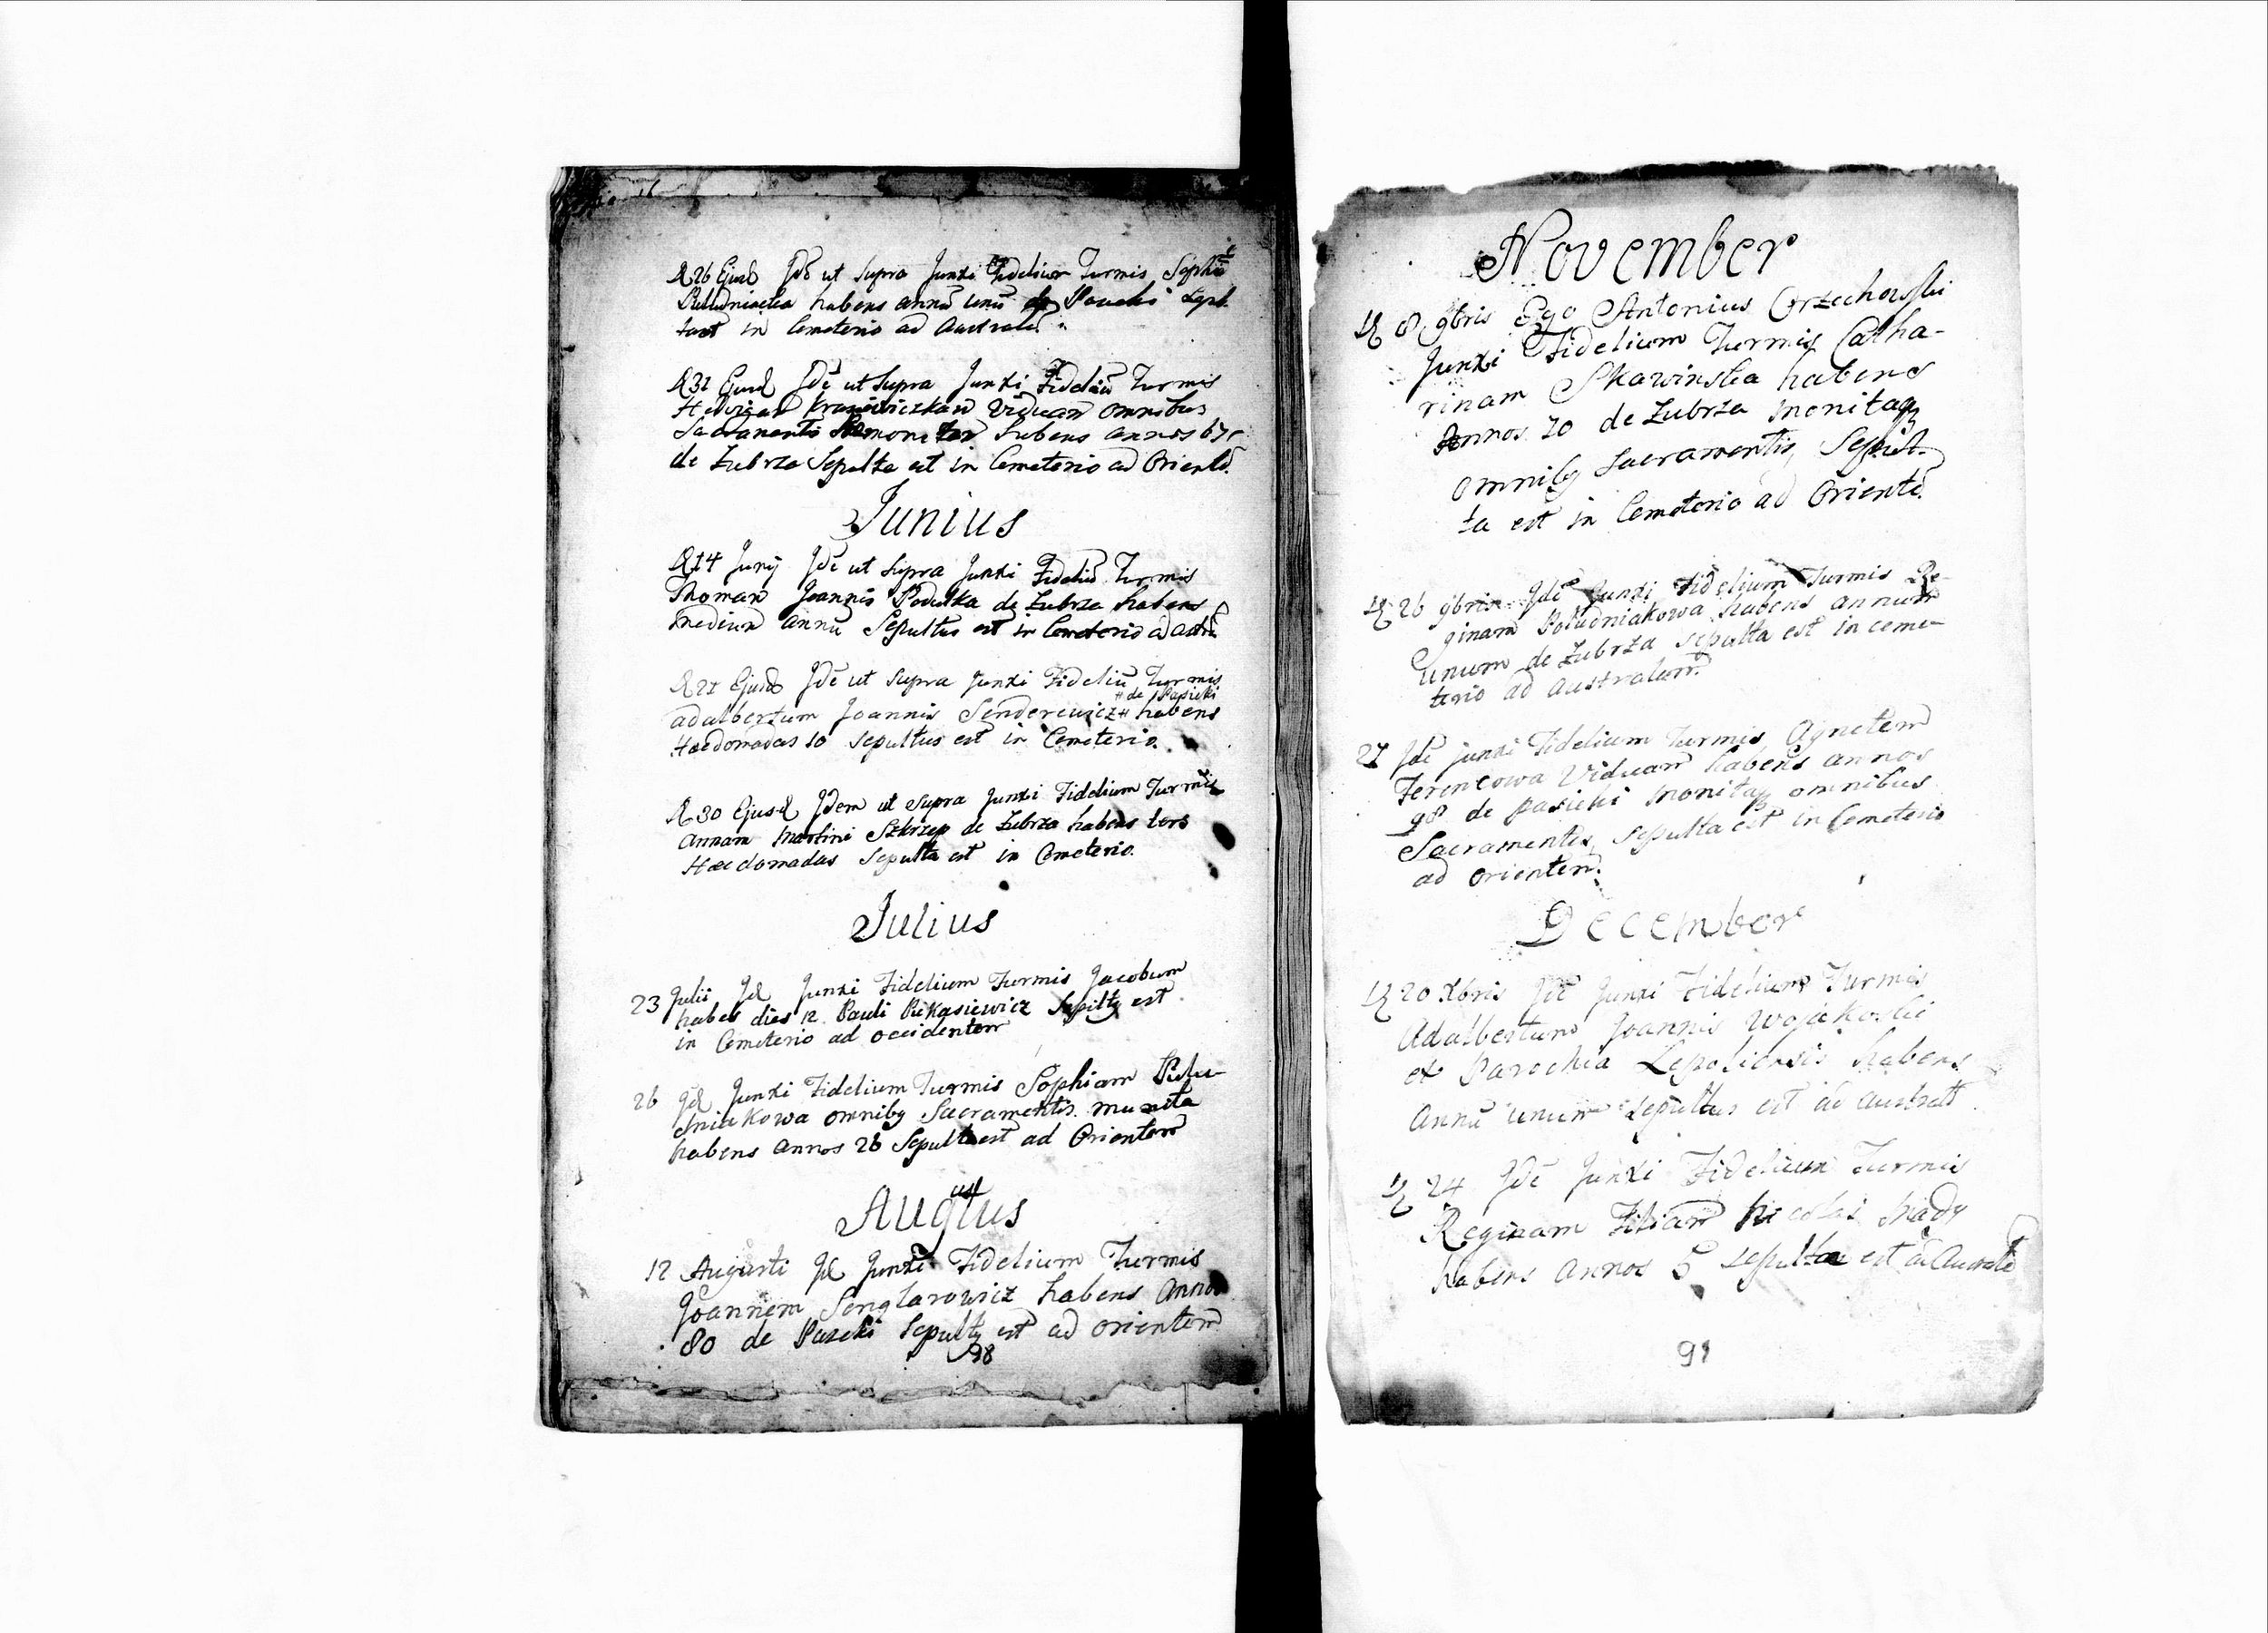 D 26 Ejusd Jdē ut Supra Junxi Fidelium Turmis Sophiā
habens annū unū de Pasieki Sepul
tast in Cemeterio ad Australē
D 31 Ejusd Jdē ut Supra Junxi Fideliū Turmis
Hedvigam Viduam omnibus
Sacramentis habens annos 67
de Zubrza Sepulta est in Cemeterio ad Orientē
Junius
D 14 Junij Jdē ut Supra Junxi Fideliū Turmis
Thomam Joannis Podulka de Zubrza habens
medium annū Sepultus est in Cemeterio ad
D 21 Ejusd Jdē ut Supra Junxi Fideliū Turmis
# de Pasieki
adalbertum Joannis Senderewicz # habens
Haedomadas 10 Sepultus est in Cemeterio.
D 30 Ejusd Jdem ut Supra Junxi Fidelium Turmis
Annam Martini Szkrzep de Zubrza habens
Haedomadas Sepulta est in Cemeterio.
Julius
23 Julii Jd Junxi Fidelium Turmis Jacobum
habes dies 12 Pauli Pikasiewicz Sepultq est
in Cemeterio ad occidentem
26 Jd Junxi Fidelium Turmis Sophiam Pulu-
dniakowa omnibq Sacramentis munita
habens annos 28 Sepulta est ad Orientem
ust
Augtus
12 Augusti Jd Junxi Fidelium Turmis
Joannem Senglarowicz habens Annos
80 de Pazeki Sepultq est ad orientem
98
November
D 8 9bris Ego Antonius Orzechowski
Junxi Fidelium Turmis Catha-
rinam Skawinska habens
Annos 70 de Zubrza monitaq
omnibq Sacramentis, Sepul-
ta est in Cemeterio ad Orientē
D 26 9bris Jdē Junxi Fidelium Turmis Re-
ginam Poludniakowa habens annum
unum de Zubrza sepulta est in ceme-
terio ad australem
27 Jdē junxi Fidelium Turmis Agnetem
Ferencowa Viduam habens annos
98 de pasieki monitaq omnibus
Sacramentis, Sepulta est in Cemeterio
ad orientem.
December
D 20 Xbris Jdē Junxi Fidelium Turmis
Adalbertum Joannis Wojakoski
ex Parochia Leopoliensis habens
Annū unum sepultus est ad austral
D 24 Jdē Junxi Fidelium Turmis
Reginam Filiam Nicolai
habens annos 5 sepulta est ad
91